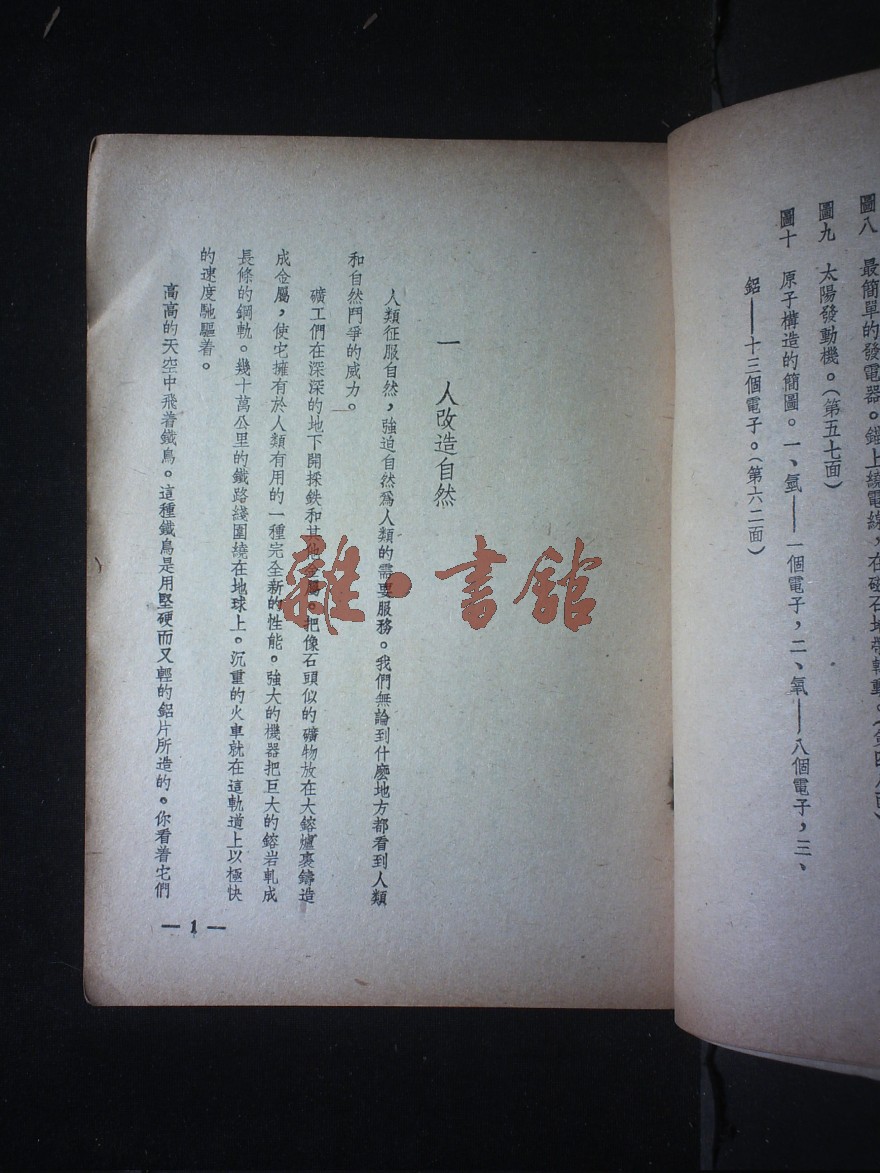 圖八　最簡單的發電器。錨上繞電線，在磁石地帶轉動。（第四八面）
圖九　太陽發動機。（第五七面）
圖十　原子構造的簡圖。一、氫——一個電子，二、氧——八個電子，三、
鋁——十三個電子。（第六二面）
一　人改造自然
人類征服自然，強迫自然爲人類的需要服務。我們無論到什麽地方都看到人類
和自然鬥爭的威力。
礦工們在深深的地下開採鉄和其他金屬。把像石頭似的礦物放在大鎔爐裏鑄造
成金屬，使它擁有於人類有用的一種完全新的性能。強大的機器把巨大的鎔岩軋成
長條的鋼軌。幾十萬公里的鐵路綫圍繞在地球上。沉重的火車就在這軌道上以極快
的速度馳驅着。
高高的天空中飛着鐵鳥。這種鐵鳥是用堅硬而又輕的鋁片所造的。你看着它們
— 1 —
雜·書館